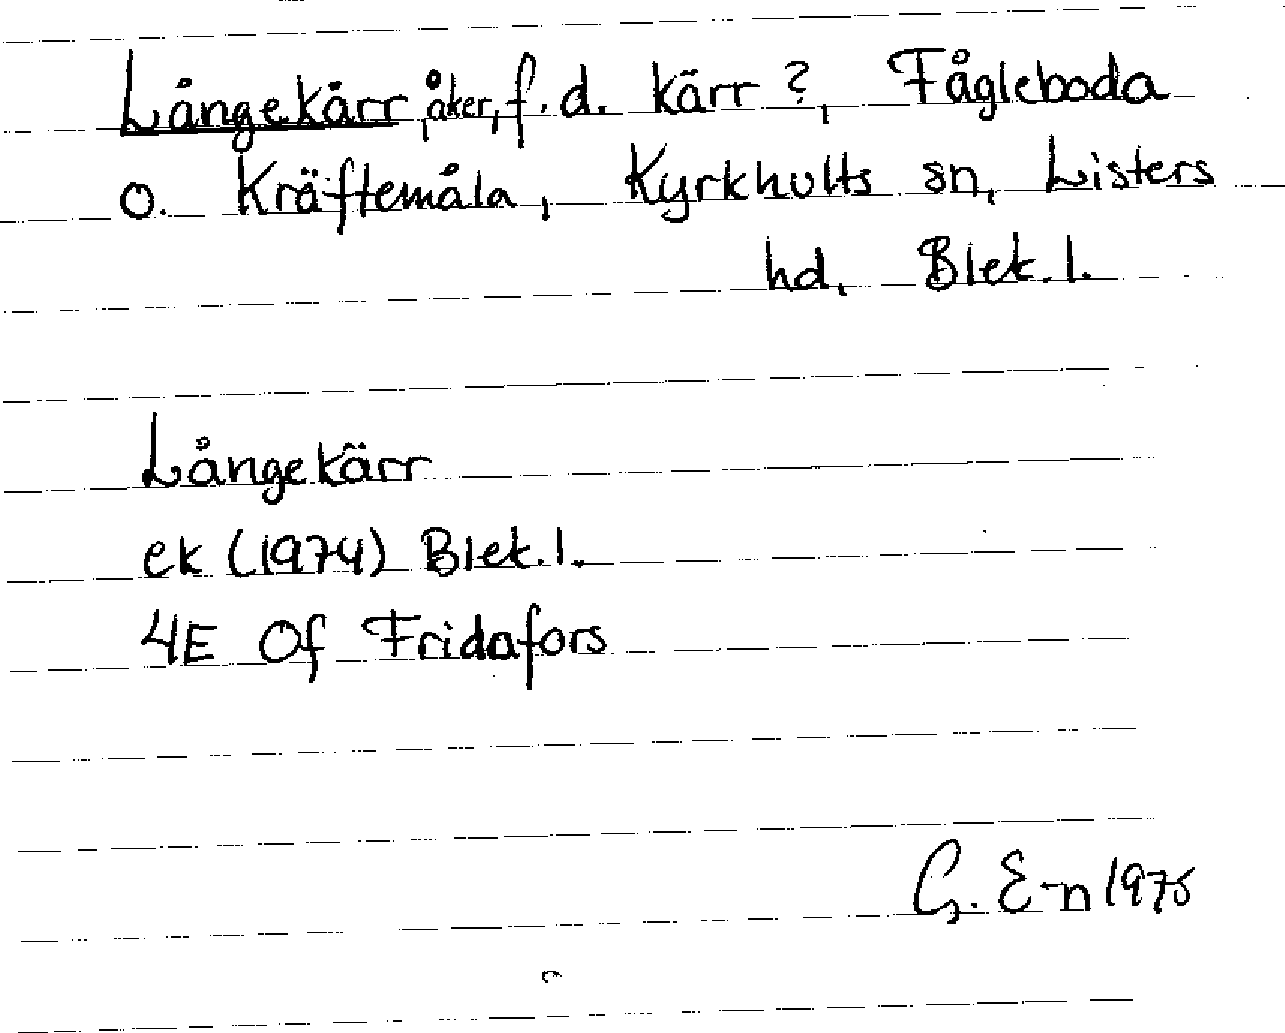 Långekärr, åker, f.d. kärr?, Fågleboda
o. Kräftemåla, Kyrkhults sn, Listers
hd, Blek.l.
Långekärr
ek (1974) Blek.l.
4E 0f Fridafors
G. E-n 1976